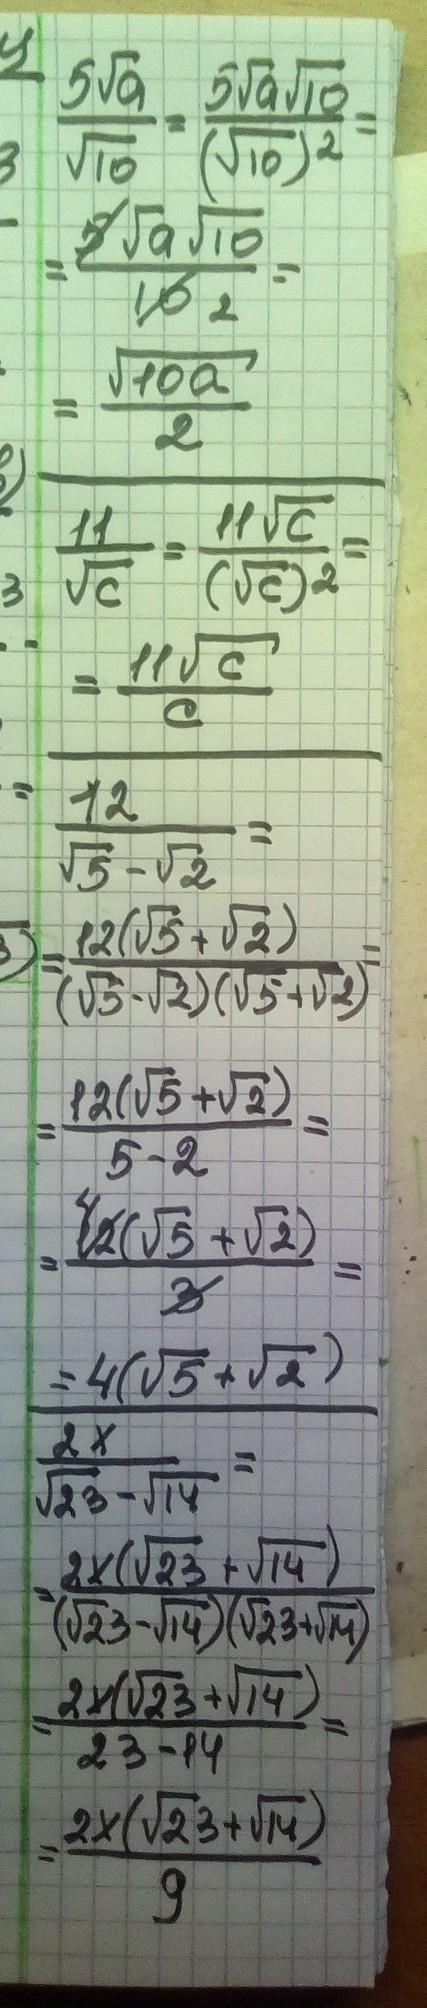 5√a/√10 = 5√a√10/(√10)² =
= 5√a√10/10 2 =
= √10a/2
11/√c = 11√c/(√c)² =
= 11√c/c
12/(√5-√2) =
= 12(√5+√2)/(√5-√2)(√5+√2) =
= 12(√5+√2)/(5-2) =
= 4 12(√5+√2)/3 =
= 4(√5+√2)
2x/(√23-√14) =
= 2x(√23+√14)/(√23-√14)(√23+√14)
= 2x(√23+√14)/(23-14) =
= 2x(√23+√14)/9